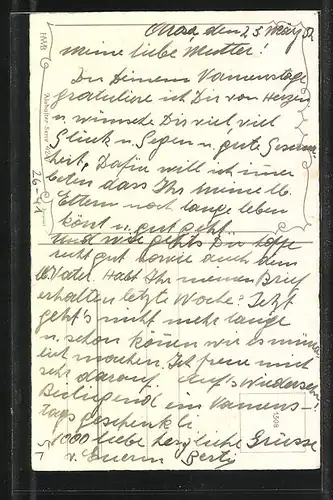 den 23. März
meine liebe Mutter!
Zu Deinem Namenstage
gratuliere ich Dir von Herzen
u. wünsche Dir viel, viel
Glück u. Segen u. gute Gesund-
heit. Dafür will ich immer
beten dass Ihr meine lb.
Eltern noch lange leben
könt u. gut geht.
Und wie gehts Dir hoffe
recht gut sowie auch dem
lb. Vater. Habt Ihr meinen Brief
erhalten letzte Woche? Jetzt
geht's nicht mehr lange
u. schon können wir es münd-
lich machen. Ich freue mich
sehr darauf. Auf's Wiedersehen!
Beiliegend ein Namens-
tagsgeschenkli.
1000 liebe herzliche Grüsse
v. Euerm Berti
HWB
Künstler-Serie
26-41
1508